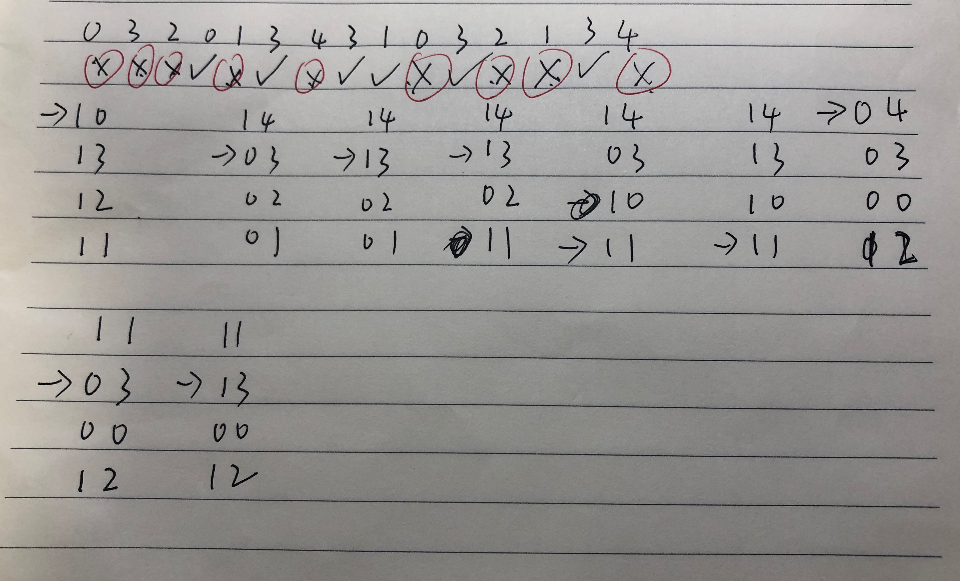 0 3 2 0 1 3 4 3 1 0 3 2 1 3 4
× × × ✓ × ✓ × ✓ ✓ × ✓ × × ✓ ×
→10 14 14 14 14 14 →04
13 →03 →13 →13 03 13 03
12 02 02 02 →10 10 00
11 01 01 11 →11 →11 12
11 11
→03 →13
00 00
12 12